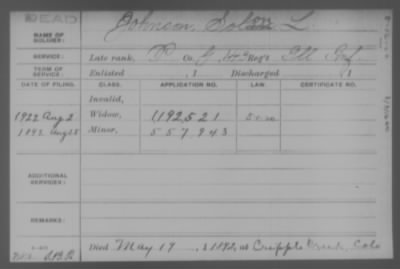 DEAD
NAME OF SOLDIER: Johnson, Sol L
SERVICE: Late rank, P Co. Reg't Ill Inf
TERM OF SERVICE: Enlisted , 1 Discharged 1
DATE OF FILING. CLASS. APPLICATION NO. LAW. CERTIFICATE NO.
Invalid,
1922 Aug 2 Widow, 1192,521
1892 Aug 25 Minor, 557,943
ADDITIONAL SERVICES:
REMARKS:
Died May 19, 1892, at Cripple Creek, Colo